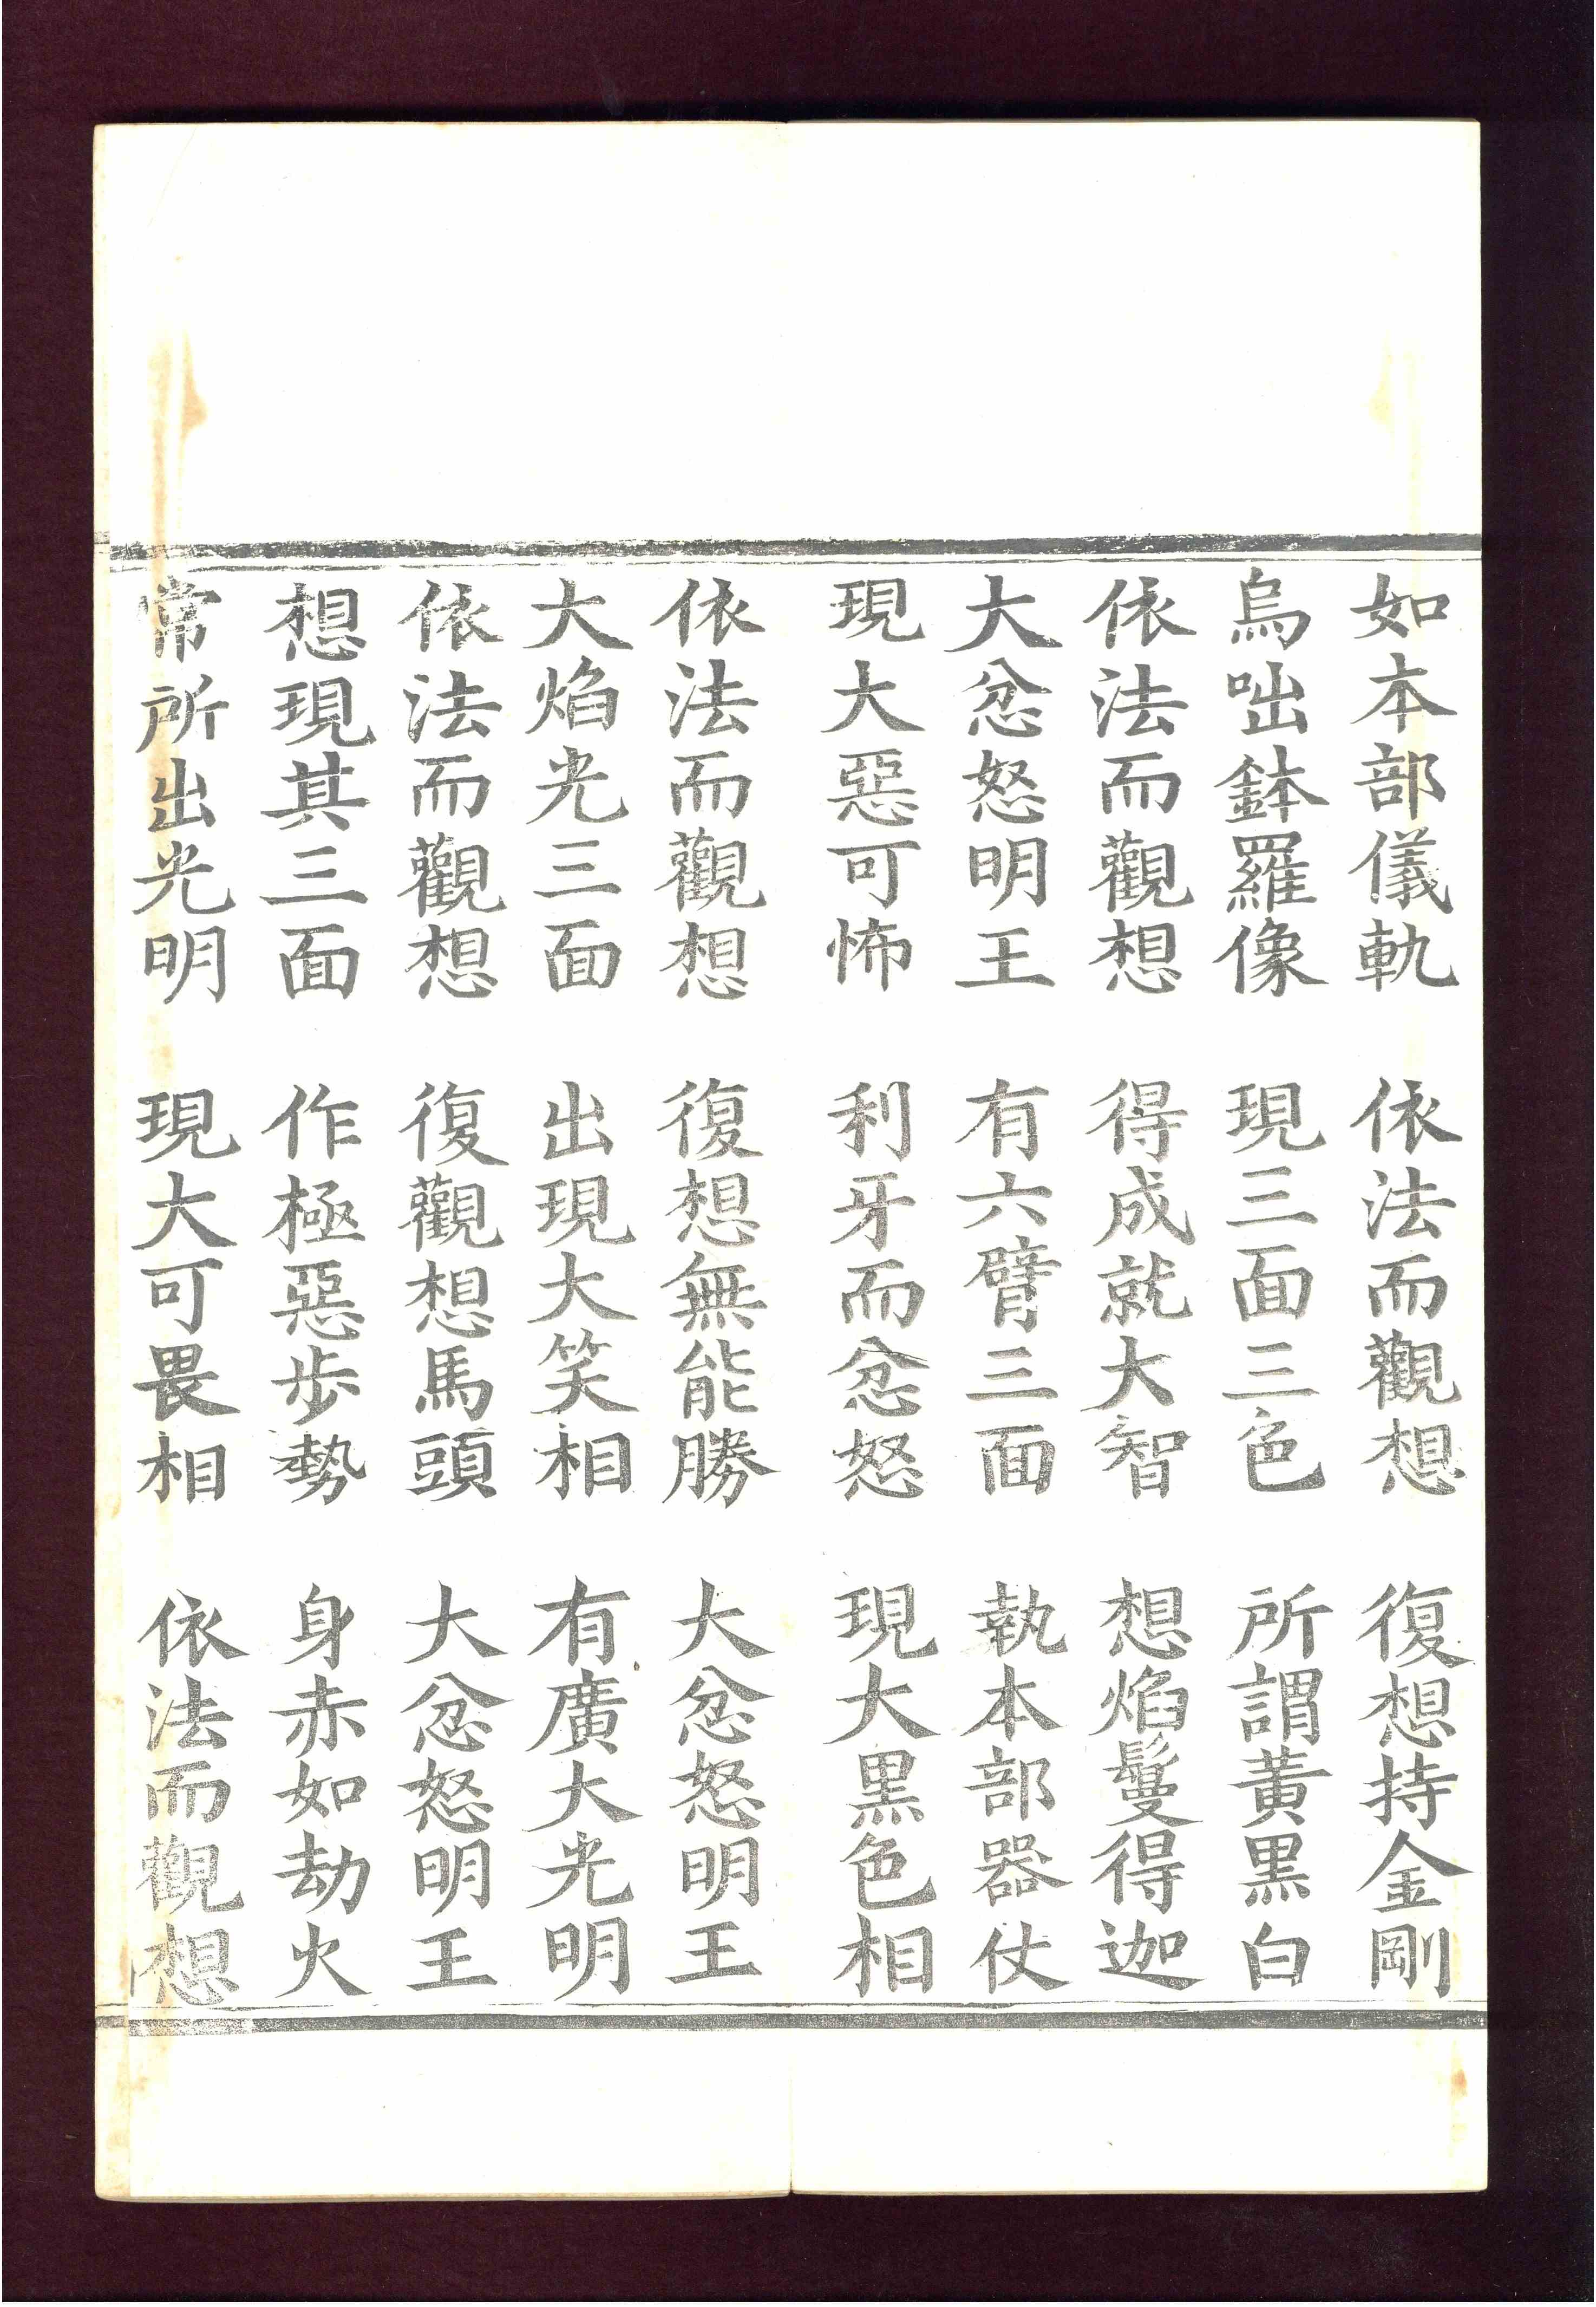 如本部儀軌　依法而觀想　復想持金剛
烏咄鉢羅像　現三面三色　所謂黃黑白
依法而觀想　得成就大智　想焰鬘得迦
大忿怒明王　有六臂三面　執本部器仗
現大惡可怖　利牙而忿怒　現大黑色相
依法而觀想　復想無能勝　大忿怒明王
大焰光三面　出現大笑相　有廣大光明
依法而觀想　復觀想馬頭　大忿怒明王
想現其三面　作極惡步勢　身赤如劫火
常所出光明　現大可畏相　依法而觀想